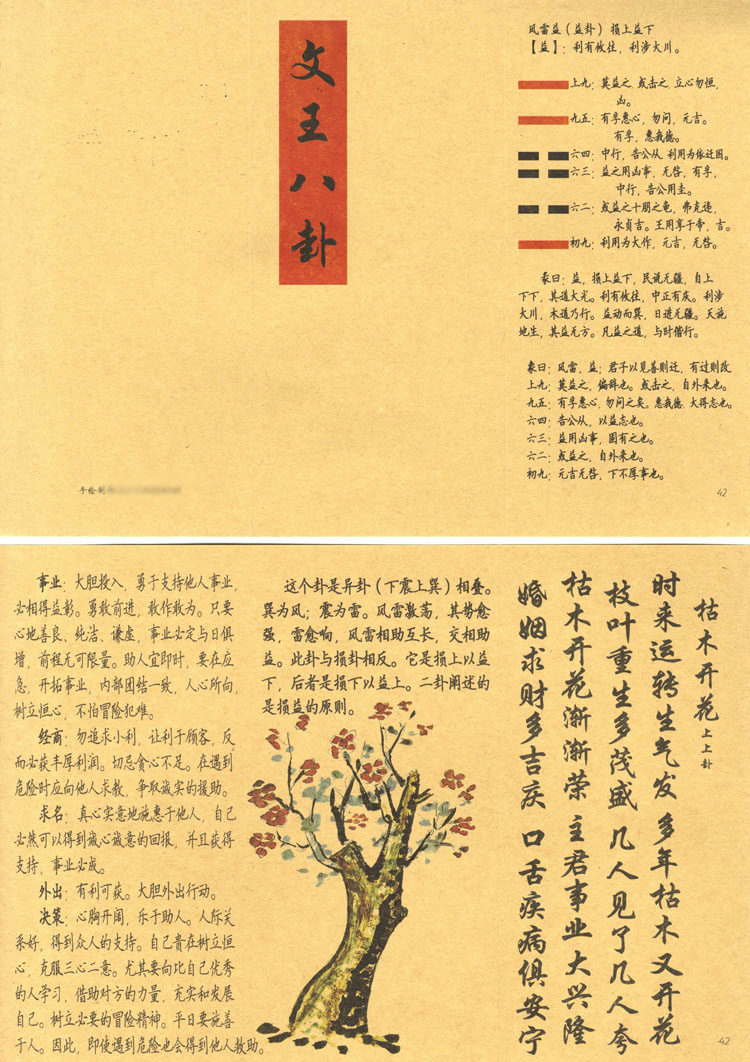 文王八卦
风雷益（益卦）损上益下
【益】：利有攸往，利涉大川。
上九：莫益之，或击之，立心勿恒，
凶。
九五：有孚惠心，勿问，元吉。
有孚，惠我德。
六四：中行，告公从，利用为依迁国。
六三：益之用凶事，无咎，有孚，
中行，告公用圭。
六二：或益之十朋之龟，弗克违，
永贞吉。王用享于帝，吉。
初九：利用为大作，元吉，无咎。
彖曰：益，损上益下，民说无疆，自上
下下，其道大光。利有攸往，中正有庆。利涉
大川，木道乃行。益动而巽，日进无疆。天施
地生，其益无方。凡益之道，与时偕行。
象曰：风雷，益；君子以见善则迁，有过则改
上九：莫益之，偏辞也。或击之，自外来也。
九五：有孚惠心，勿问之矣。惠我德，大得志也。
六四：告公从，以益志也。
六三：益用凶事，固有之也。
六二：或益之，自外来也。
初九：元吉无咎，下不厚事也。
手绘制
42
枯木开花 上上卦
时来运转生气发 多年枯木又开花
枝叶重生多茂盛 几人见了几人夸
枯木开花渐渐荣 主君事业大兴隆
婚姻求财多吉庆 口舌疾病俱安宁
这个卦是异卦（下震上巽）相叠。
巽为风；震为雷。风雷激荡，其势愈
强，雷愈响，风雷相助互长，交相助
益。此卦与损卦相反。它是损上以益
下，后者是损下以益上。二卦阐述的
是损益的原则。
事业：大胆投入，勇于支持他人事业，
必相得益彰。勇敢前进，敢作敢为。只要
心地善良、纯洁、谦虚，事业必定与日俱
增，前程无可限量。助人宜即时，要在应
急，开拓事业，内部团结一致，人心所向，
树立恒心，不怕冒险犯难。
经商：勿追求小利，让利于顾客，反
而必获丰厚利润。切忌贪心不足。在遇到
危险时应向他人求教，争取诚实的援助。
求名：真心实意地施惠于他人，自己
必然可以得到诚心诚意的回报，并且获得
支持，事业必成。
外出：有利可获。大胆外出行动。
决策：心胸开阔，乐于助人。人际关
系好，得到众人的支持。自己贵在树立恒
心，克服三心二意。尤其要向比自己优秀
的人学习，借助对方的力量，充实和发展
自己。树立必要的冒险精神。平日要施善
于人。因此，即使遇到危险也会得到他人救助。
42